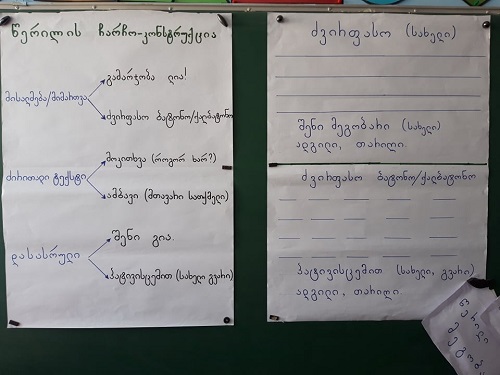 წერილის ჩარჩო-კონსტრუქცია
გამარჯობა ღია!
მისალმება/მიმართვა
ძვირფასო ბატონო/ქალბატონო
მოკითხვა (როგორ ხარ?)
ძირითადი ტექსტი
ამბავი (მთავარი სათქმელი)
შენი გია.
დასასრული
პატივისცემით (სახელი გვარი)
ძვირფასო (სახელი)
შენი მეგობარი (სახელი)
ადგილი, თარიღი.
ძვირფასო ბატონო/ქალბატონო
პატივისცემით (სახელი, გვარი)
ადგილი, თარიღი.